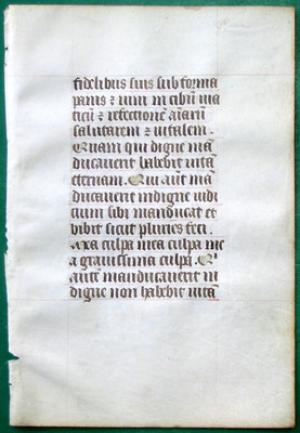 fidelibus suis sub forma
panis ⁊ vini in cibū via
ticū ⁊ refectionē aīarū
salutarem ⁊ vitalem.
Quam qui digne mā
ducaverit habebit vitā
eternam. Qui autē mā
ducaverit indigne iudi
cium sibi manducat et
bibit sicut pluries feci.
Mea culpa mea culpa me
a gravissima culpa. Qͥ
autē manducaverit in
digne non habebit vitā